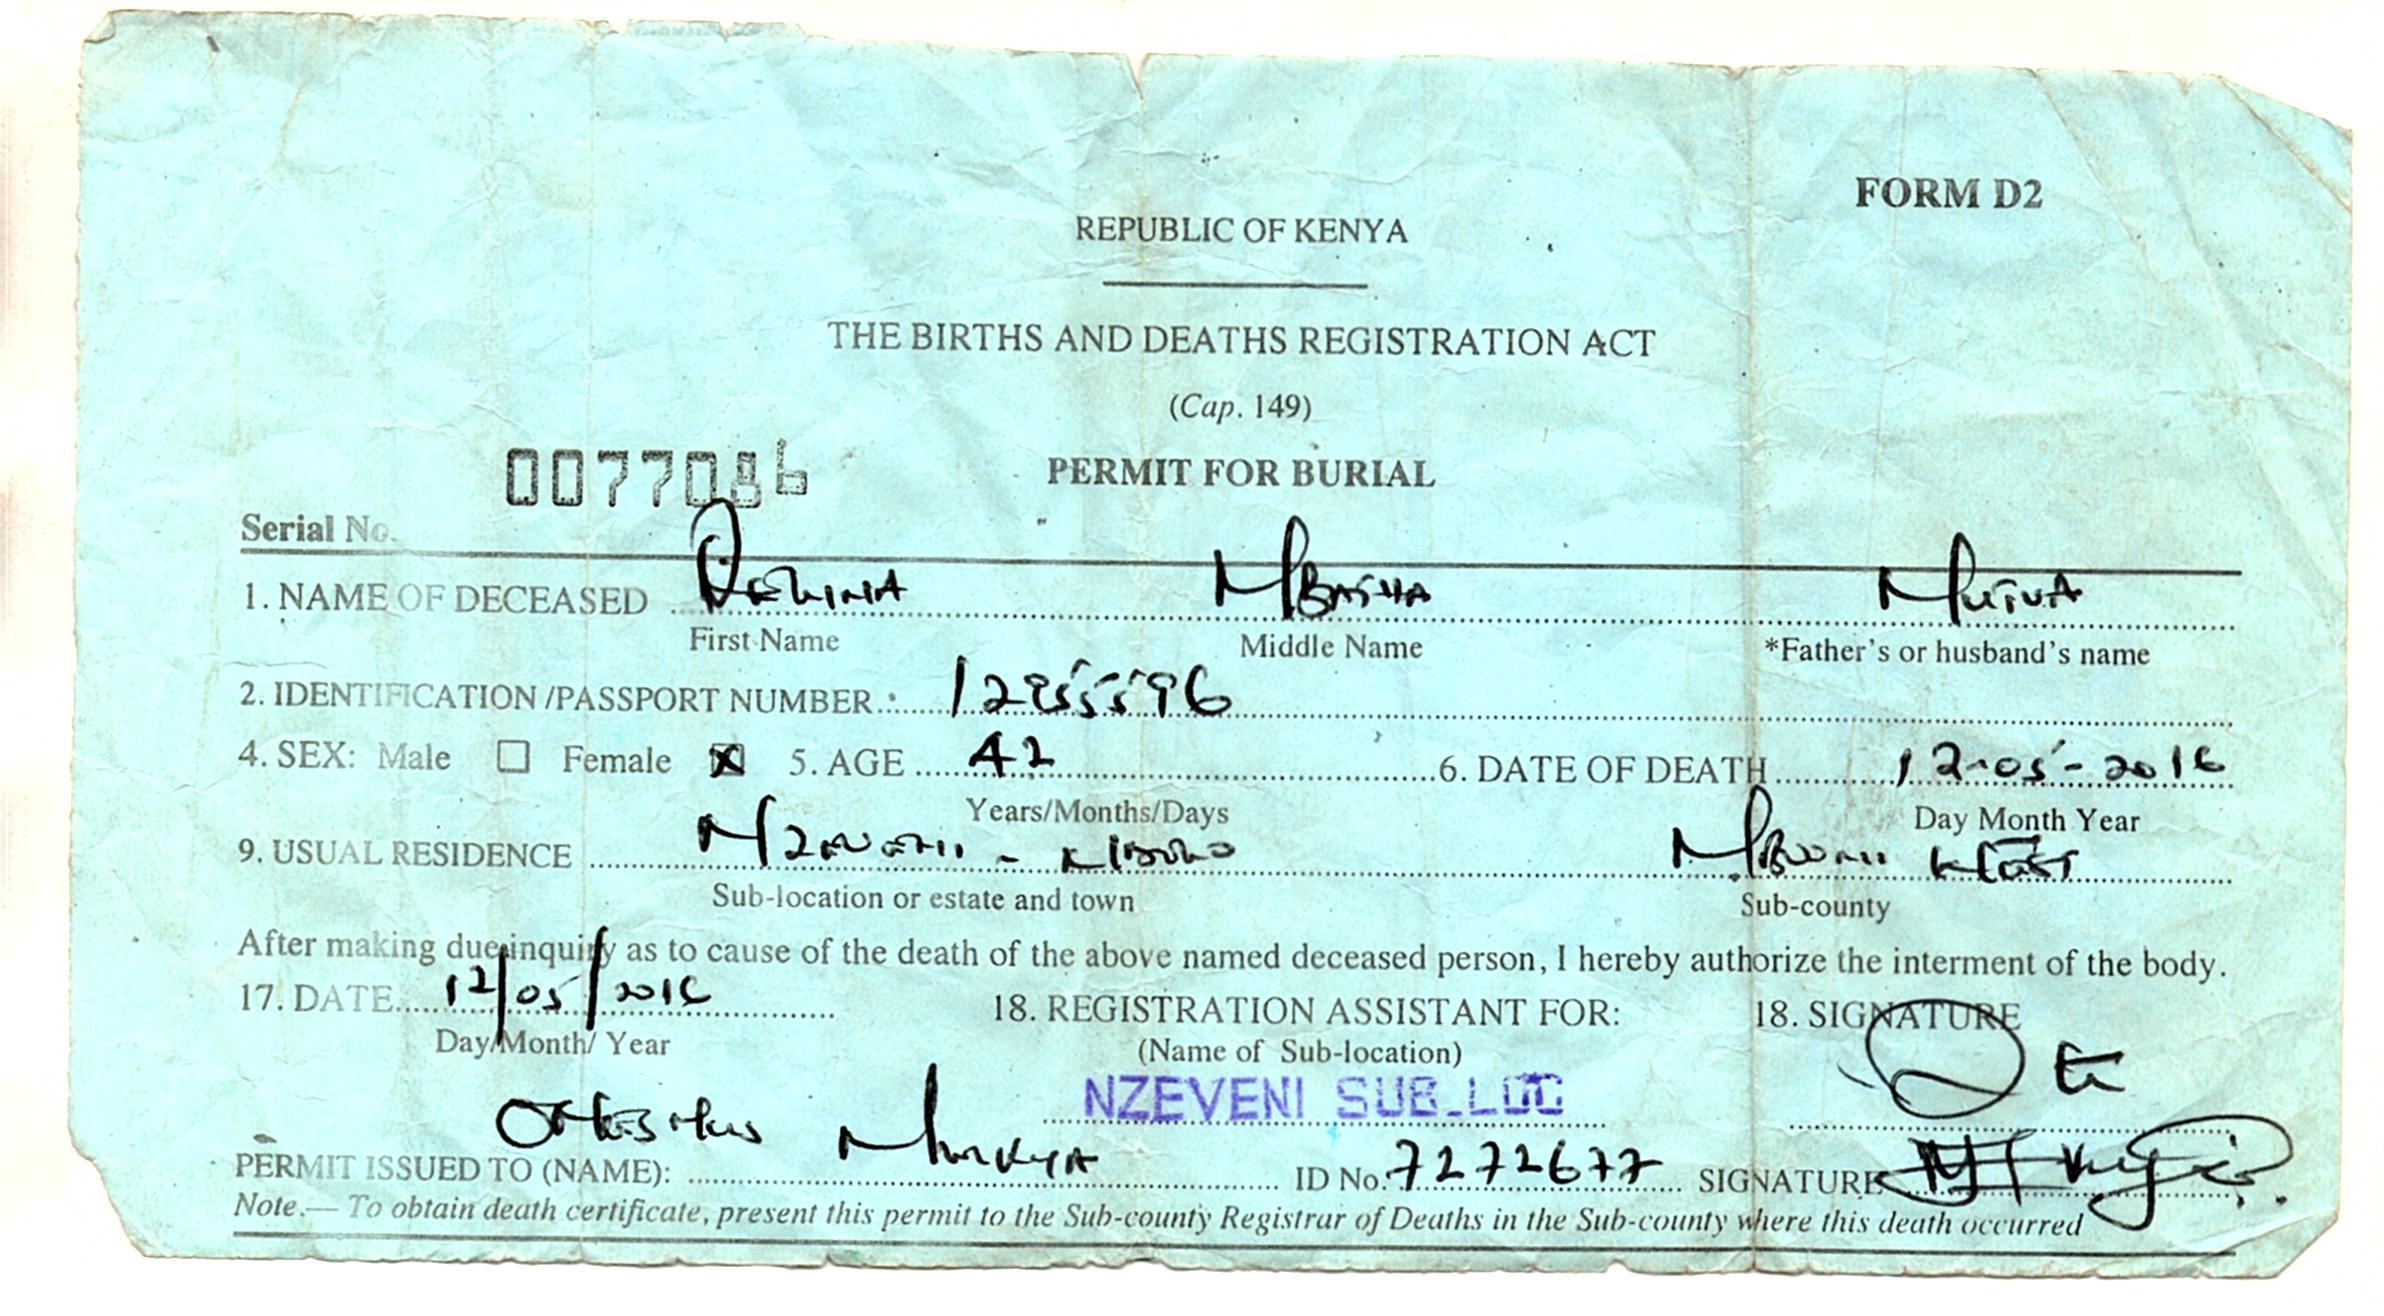 FORM D2
REPUBLIC OF KENYA
THE BIRTHS AND DEATHS REGISTRATION ACT
(Cap. 149)
PERMIT FOR BURIAL
Serial No. 0077086
1. NAME OF DECEASED ... Mutua
First Name Middle Name *Father's or husband's name
2. IDENTIFICATION /PASSPORT NUMBER 12855596
4. SEX: Male ☐ Female ☒ 5. AGE 42 6. DATE OF DEATH 12-05-2016
Years/Months/Days Day Month Year
9. USUAL RESIDENCE
Sub-location or estate and town Sub-county
After making due inquiry as to cause of the death of the above named deceased person, I hereby authorize the interment of the body.
17. DATE 12/05/2016 18. REGISTRATION ASSISTANT FOR: 18. SIGNATURE
Day/Month/ Year (Name of Sub-location)
NZEVENI SUB-LOC
PERMIT ISSUED TO (NAME): ID No. 7272677 SIGNATURE
Note.— To obtain death certificate, present this permit to the Sub-county Registrar of Deaths in the Sub-county where this death occurred